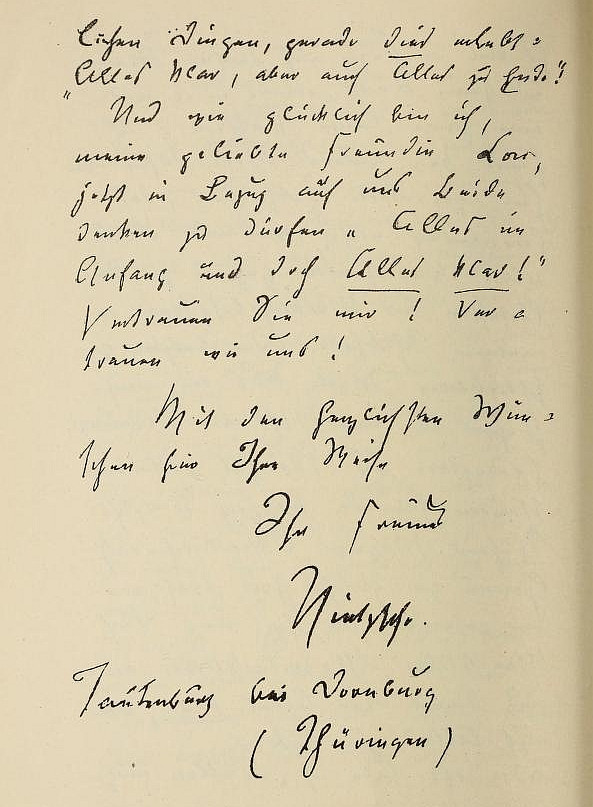 lichen Dingen, gerade dies erlebt:
„Alles klar, aber auch Alles zu Ende!"
Und wie glücklich bin ich,
meine geliebte Freundin Lou,
jetzt in Bezug auf uns Beide
denken zu dürfen „Alles im
Anfang und doch Alles klar!"
Vertrauen Sie mir! Ver=
trauen wir uns!
Mit den herzlichsten Wün=
schen für Ihre Reise
Ihr Freund
Nietzsche.
Tautenburg bei Dornburg
(Thüringen)